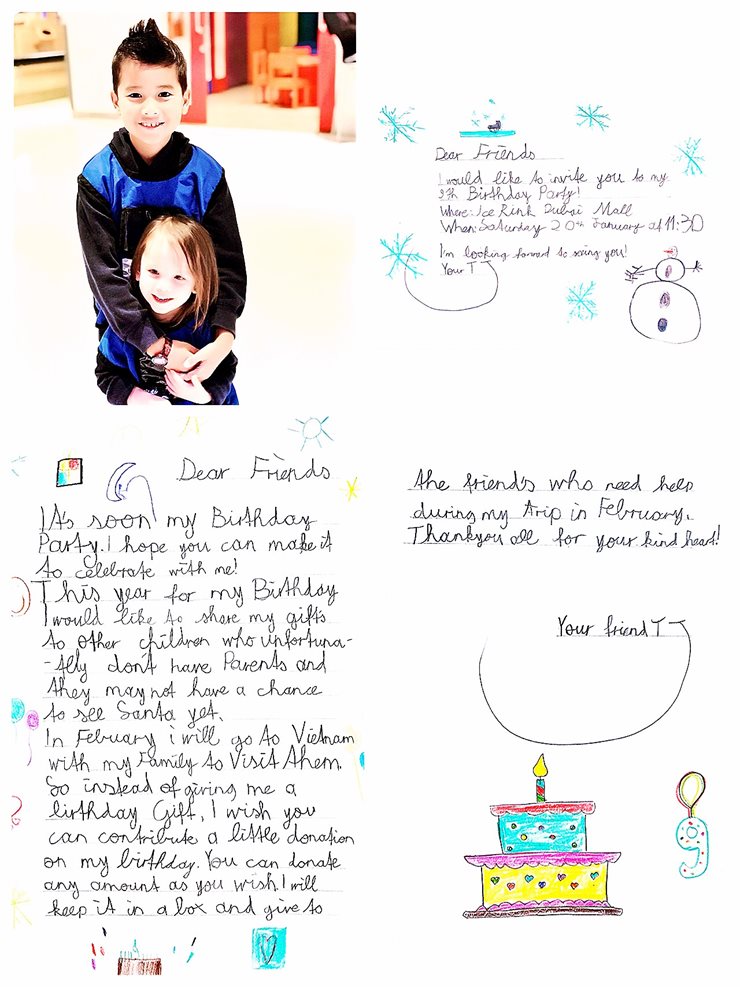 Dear Friends
I would like to invite you to my
9th Birthday Party!
Where: Ice Rink Dubai Mall
When: Saturday 20th January at 11:30
I'm looking forward to seeing you!
Your TJ
Dear Friends
It's soon my Birthday
Party. I hope you can make it
to celebrate with me!
This year for my Birthday
I would like to share my gifts
to other children who unfortuna-
-tlly don't have Parents and
they may not have a chance
to see Santa yet.
In Febuary i will go to Vietnam
with my Family to Visit Ahem.
So instead of giving me a
birthday Gift, I wish you
can contribute a little donation
on my birthday. You can donate
any amount as you wish. I will
keep it in a box and give to
the friend's who need help
during my trip in February.
Thankyou all for your kind heart!
Your friend TJ
9